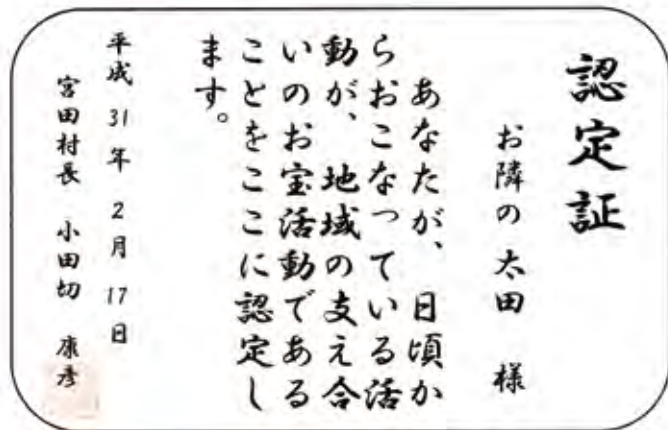 認定証
お隣の 太田 様
あなたが、日頃か
らおこなっている活
動が、地域の支え合
いのお宝活動である
ことをここに認定し
ます。
平成 31年 2月 17日
宮田村長 小田切 康彦